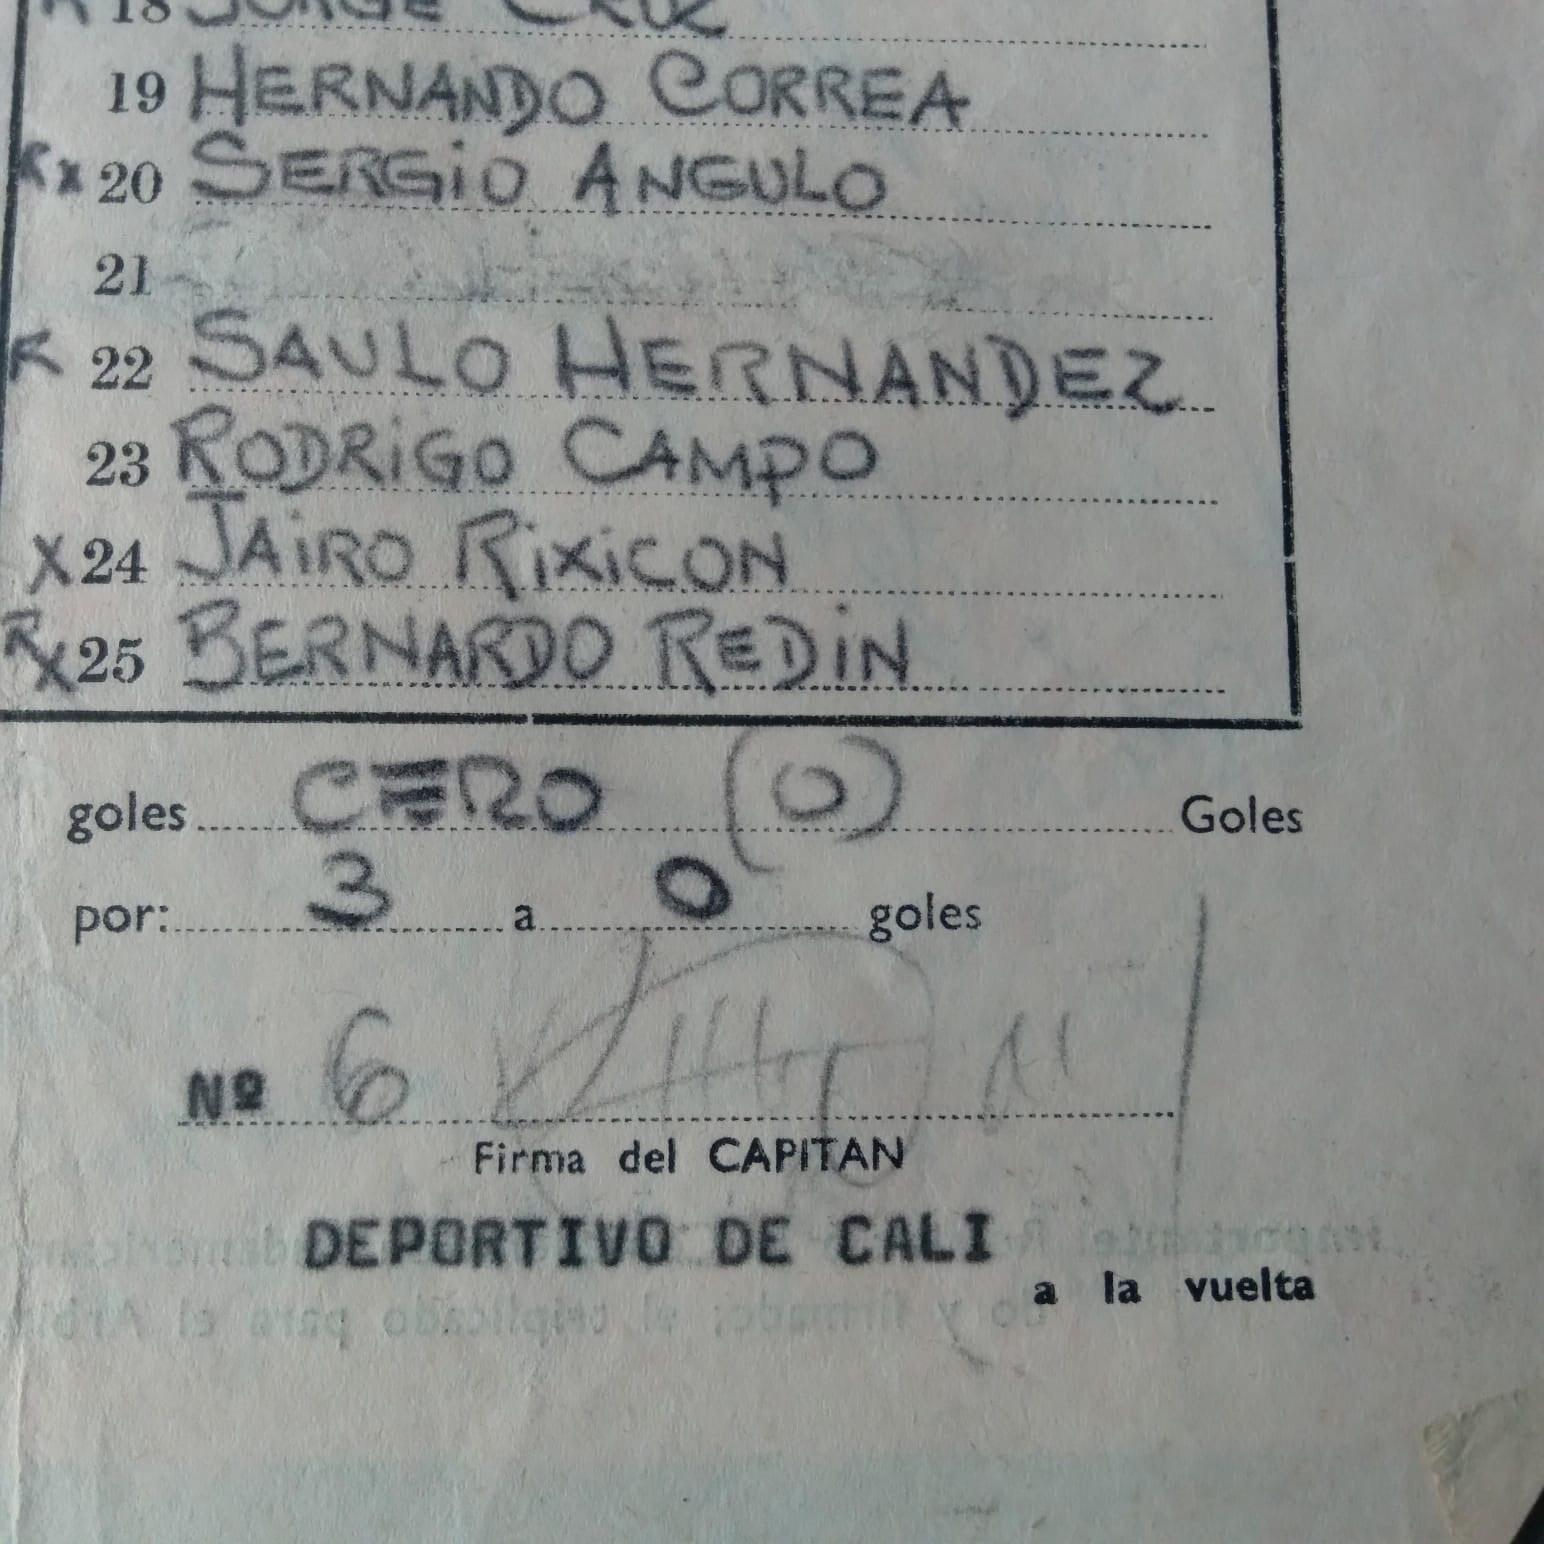 R 18 JORGE CRUZ
19 HERNANDO CORREA
Rx 20 SERGiO ANGULO
21
R 22 SAULO HERNANDEZ
23 RODRiGO CAMPO
X 24 JAiRO RiXiCON
RX 25 BERNARDO REDiN
goles CERO (0) Goles
por: 3 a 0 goles
Nº 6
Firma del CAPITAN
DEPORTIVO DE CALI
a la vuelta